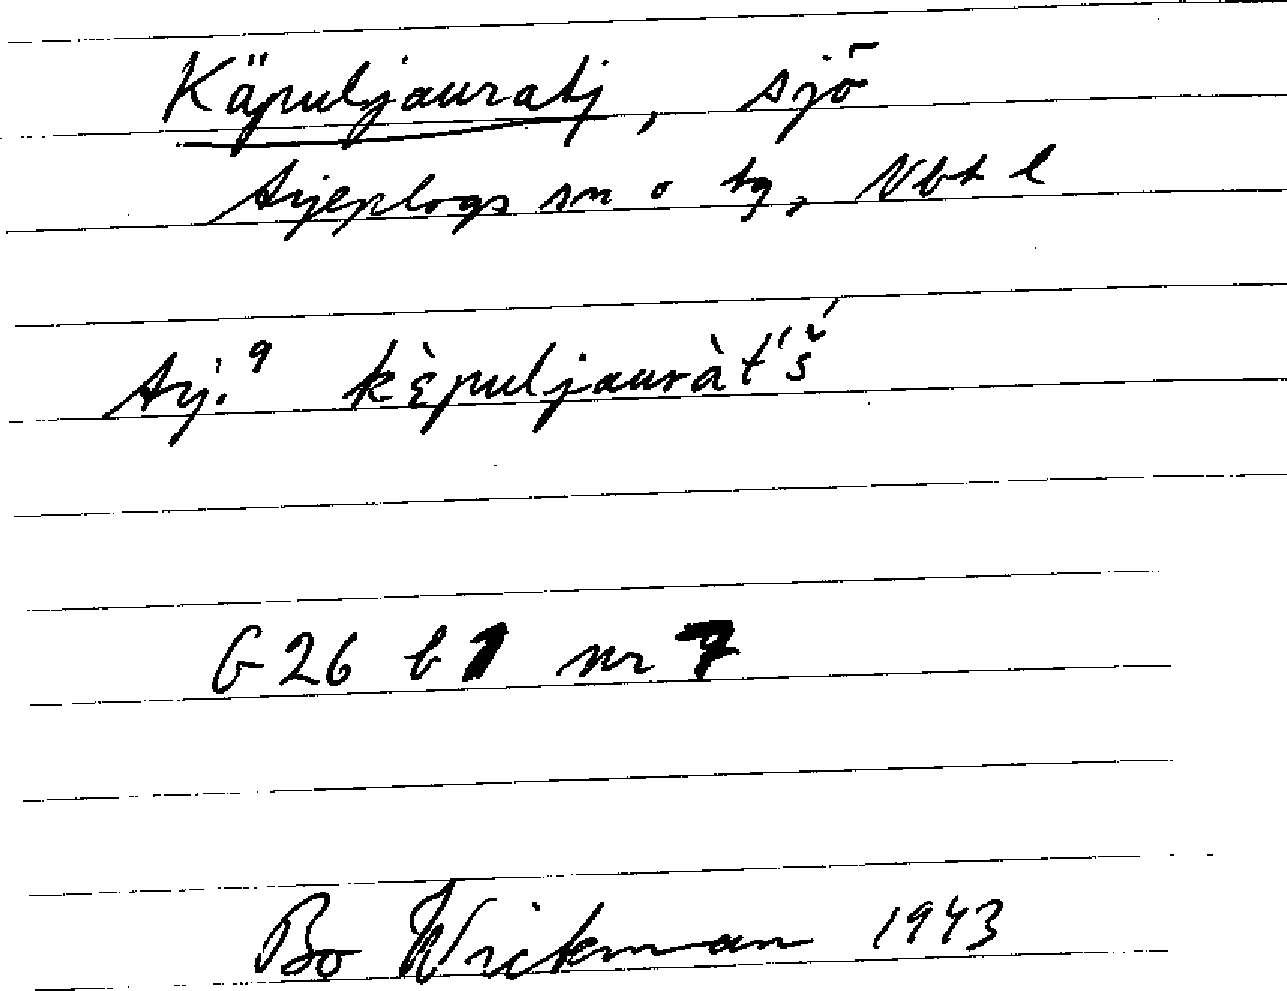 Käpuljauratj, sjö
Arjeplogs sn o tg, Nbt l
Arj.⁹ kὲpuljauràt́š́
G 26 b 1 nr 7
Bo Wickman 1943